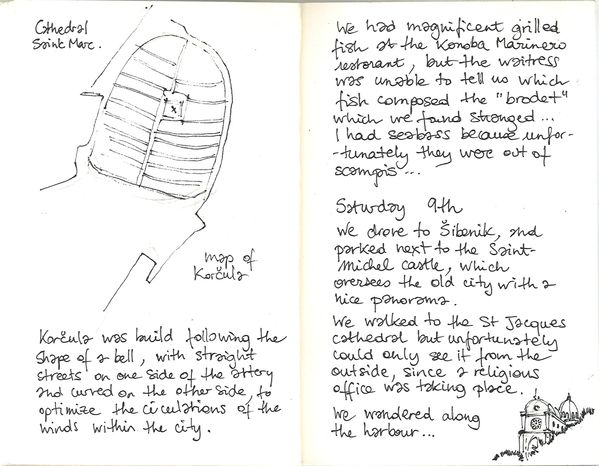 Cathedral
Saint Marc.
map of
Korčula
Korčula was build following the
shape of a bell, with straight
streets on one side of the artery
and curved on the other side, to
optimize the circulations of the
winds within the city.
We had magnificent grilled
fish at the Konoba Marinero
restorant, but the waitress
was unable to tell us which
fish composed the "brodet"
which we found stranged...
I had seabass because unfor-
-tunately they were out of
scampis...
Saturday 9th
We drove to Šibenik, and
parked next to the Saint-
Michel castle, which
oversees the old city with a
nice panorama.
We walked to the St Jacques
cathedral but unfortunately
could only see it from the
outside, since a religious
office was taking place.
We wandered along
the harbour...